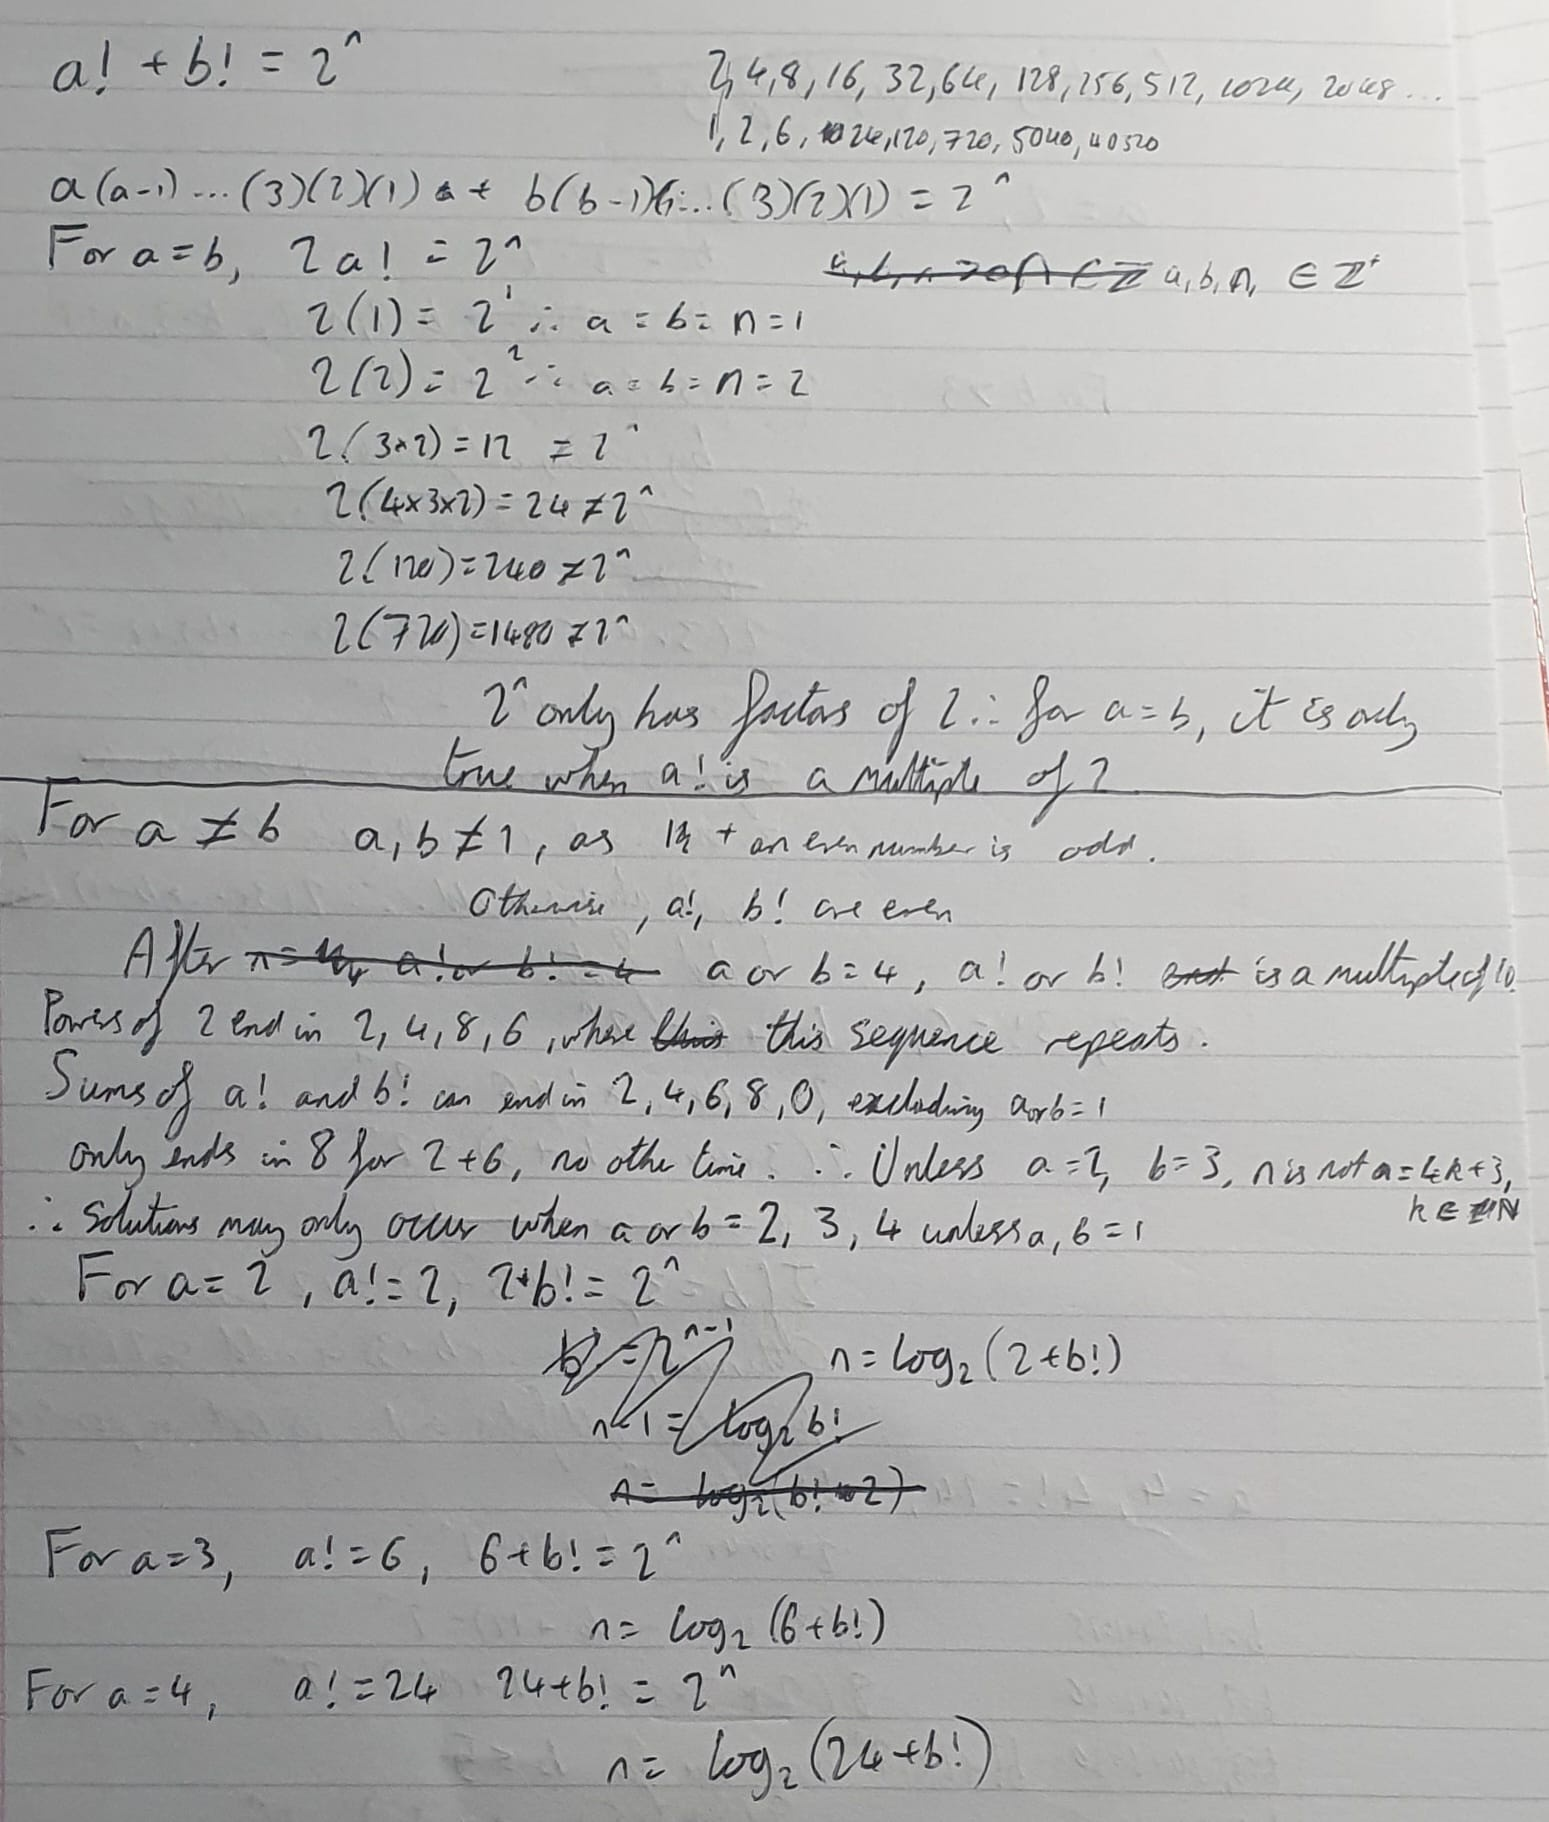 a! + b! = 2^n
2, 4, 8, 16, 32, 64, 128, 256, 512, 1024, 2048 ...
1, 2, 6, 24, 120, 720, 5040, 40320
a(a-1) ... (3)(2)(1) + b(b-1) ... (3)(2)(1) = 2^n
For a = b, 2a! = 2^n
a, b, n ∈ ℤ⁺
2(1) = 2^1 ∴ a = b = n = 1
2(2) = 2^2 ∴ a = b = n = 2
2(3×2) = 12 ≠ 2^n
2(4×3×2) = 24 ≠ 2^n
2(120) = 240 ≠ 2^n
2(720) = 1480 ≠ 2^n
2^n only has factors of 2 ∴ for a = b, it is only
true when a! is a multiple of 2
For a ≠ b a, b ≠ 1, as 1 + an even number is odd.
Otherwise, a!, b! are even
After a or b = 4, a! or b! is a multiple of 10.
Powers of 2 end in 2, 4, 8, 6, where this sequence repeats.
Sums of a! and b! can end in 2, 4, 6, 8, 0, excluding a or b = 1
only ends in 8 for 2+6, no other time. ∴ Unless a = 2, b = 3, n is not n = 4k+3,
k ∈ ℕ
∴ Solutions may only occur when a or b = 2, 3, 4 unless a, b = 1
For a = 2, a! = 2, 2+b! = 2^n
n = log₂(2+b!)
n-1 = log₂ b!
For a = 3, a! = 6, 6+b! = 2^n
n = log₂(6+b!)
For a = 4, a! = 24 24+b! = 2^n
n = log₂(24+b!)